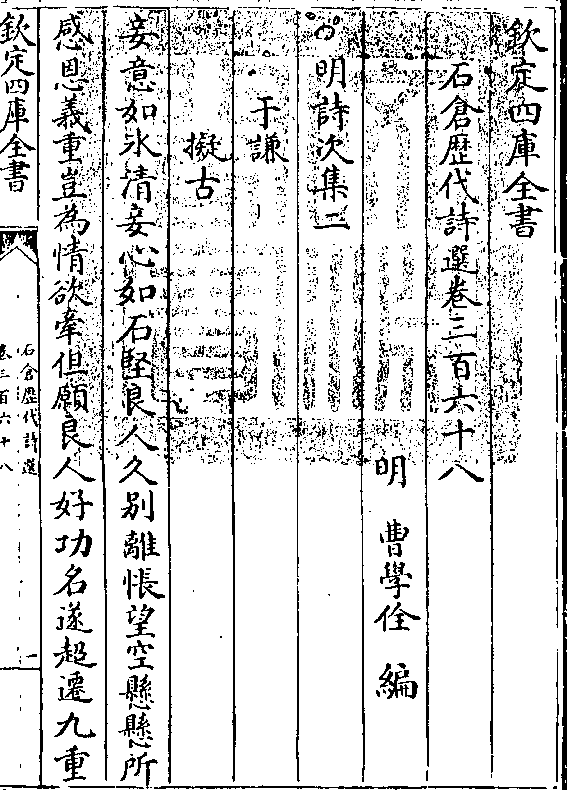 欽定四庫全書
石倉歴代詩選卷三百六十八
明 曹學佺 編
明詩次集二
于謙
擬古
妾意如氷清妾心如石堅良人久别離悵望空懸懸所
感恩義重豈為情欲牽但願良人好功名遂超遷九重
欽定四庫全書
石倉歴代詩選
卷三百六十八
一